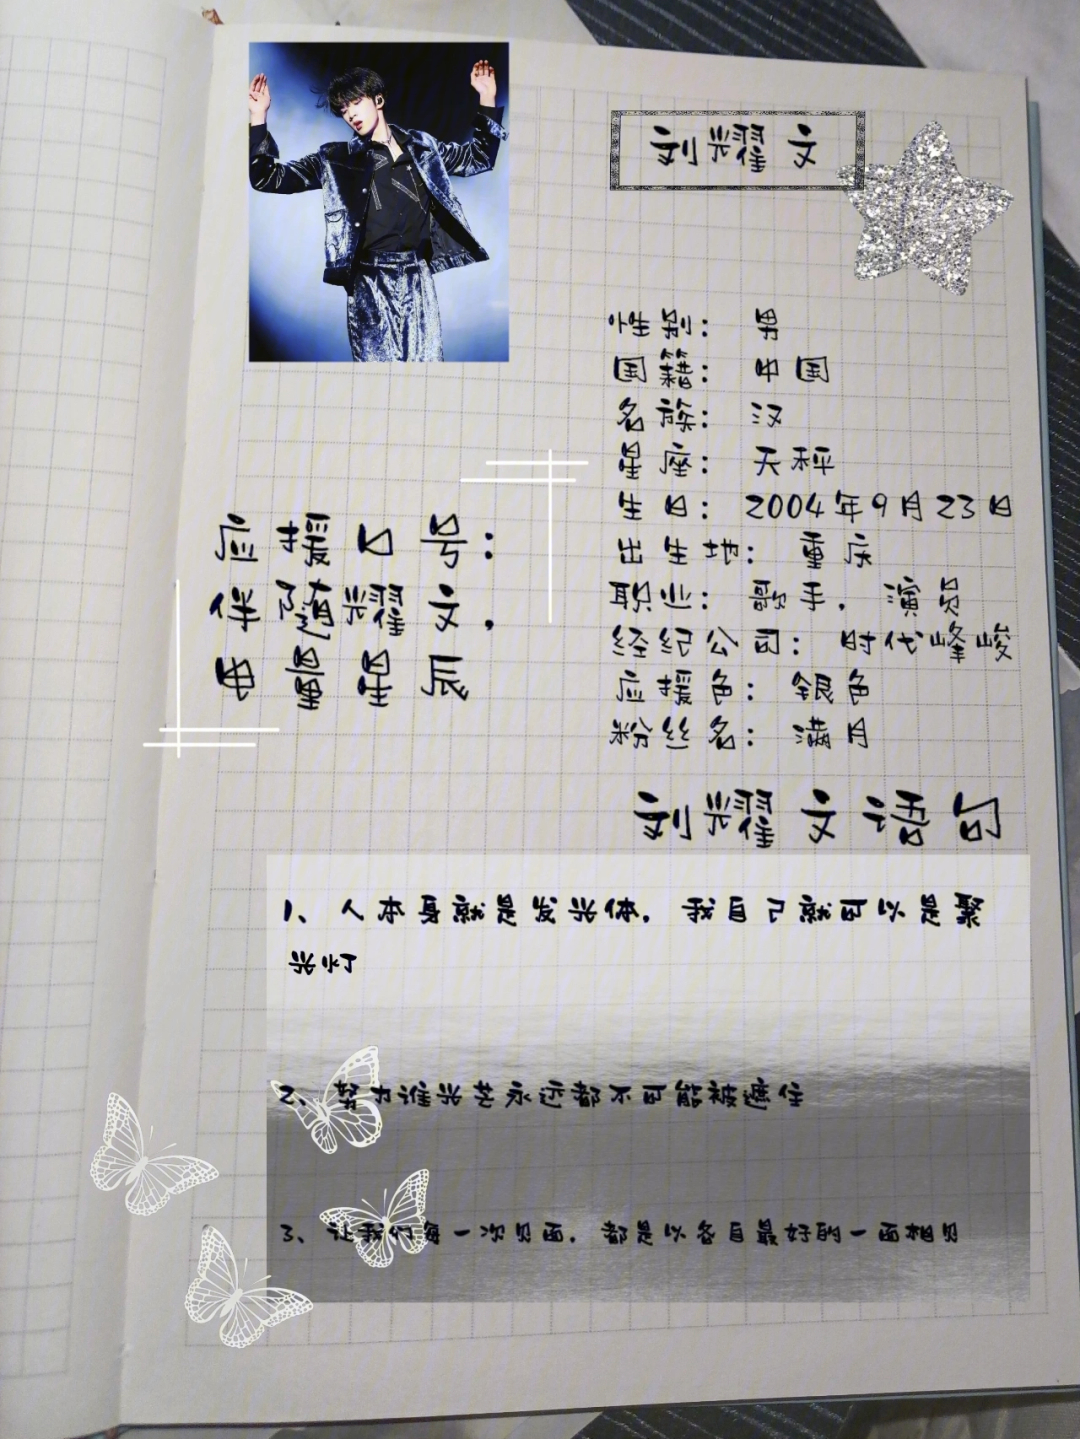 刘耀文
性别： 男
国籍： 中国
名族： 汉
星座： 天秤
生日： 2004年9月23日
出生地： 重庆
职业： 歌手，演员
经纪公司：时代峰峻
应援色：银色
粉丝名：满月
应援口号：
伴随耀文，
电量星辰
刘耀文语句
1、人本身就是发光体，我自己就可以是聚
光灯
2、努力谁光芒永远都不可能被遮住
3、让我们每一次见面，都是以各自最好的一面相见